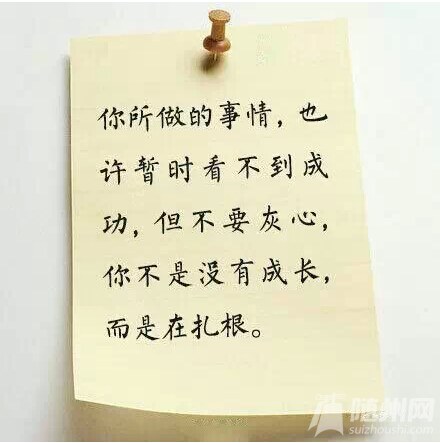 你所做的事情，也
许暂时看不到成
功，但不要灰心，
你不是没有成长，
而是在扎根。
随州网
suizhoushi.com